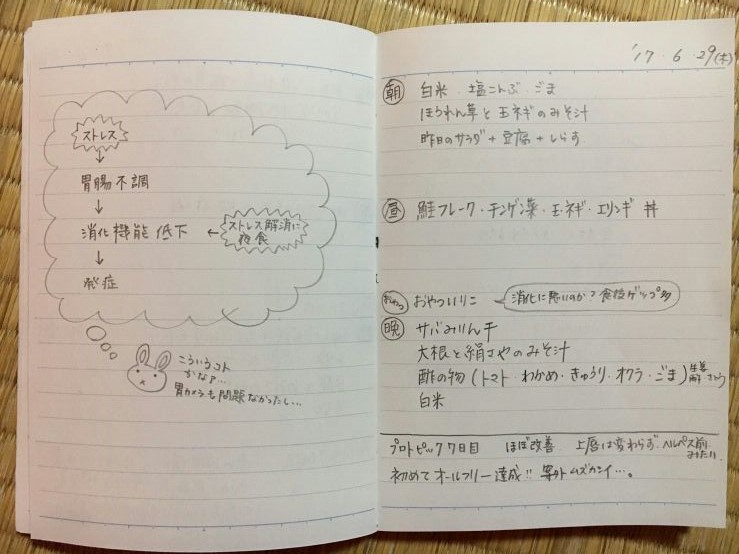 ストレス
↓
胃腸不調
↓
消化機能低下 ← ストレス解消に
夜食
↓
発症
こういうコト
かなァ…
胃カメラも問題なかったし…
'17・6・29(木)
朝 白米・塩こんぶ・ごま
ほうれん草と玉ネギのみそ汁
昨日のサラダ+豆腐+しらす
昼 鮭フレーク・チンゲン菜・玉ネギ・エリンギ 丼
おやつ おやついりこ 消化に悪いのか?食後ゲップ多
晩 サバみりん干
大根と絹さやのみそ汁
酢の物(トマト・わかめ・きゅうり・オクラ・ごま)
白米
プロトピック7日目 ほぼ改善 上唇は変わらず.ヘルペス前
みたい.
初めてオールフリー達成!! 案外ムズカシイ…。